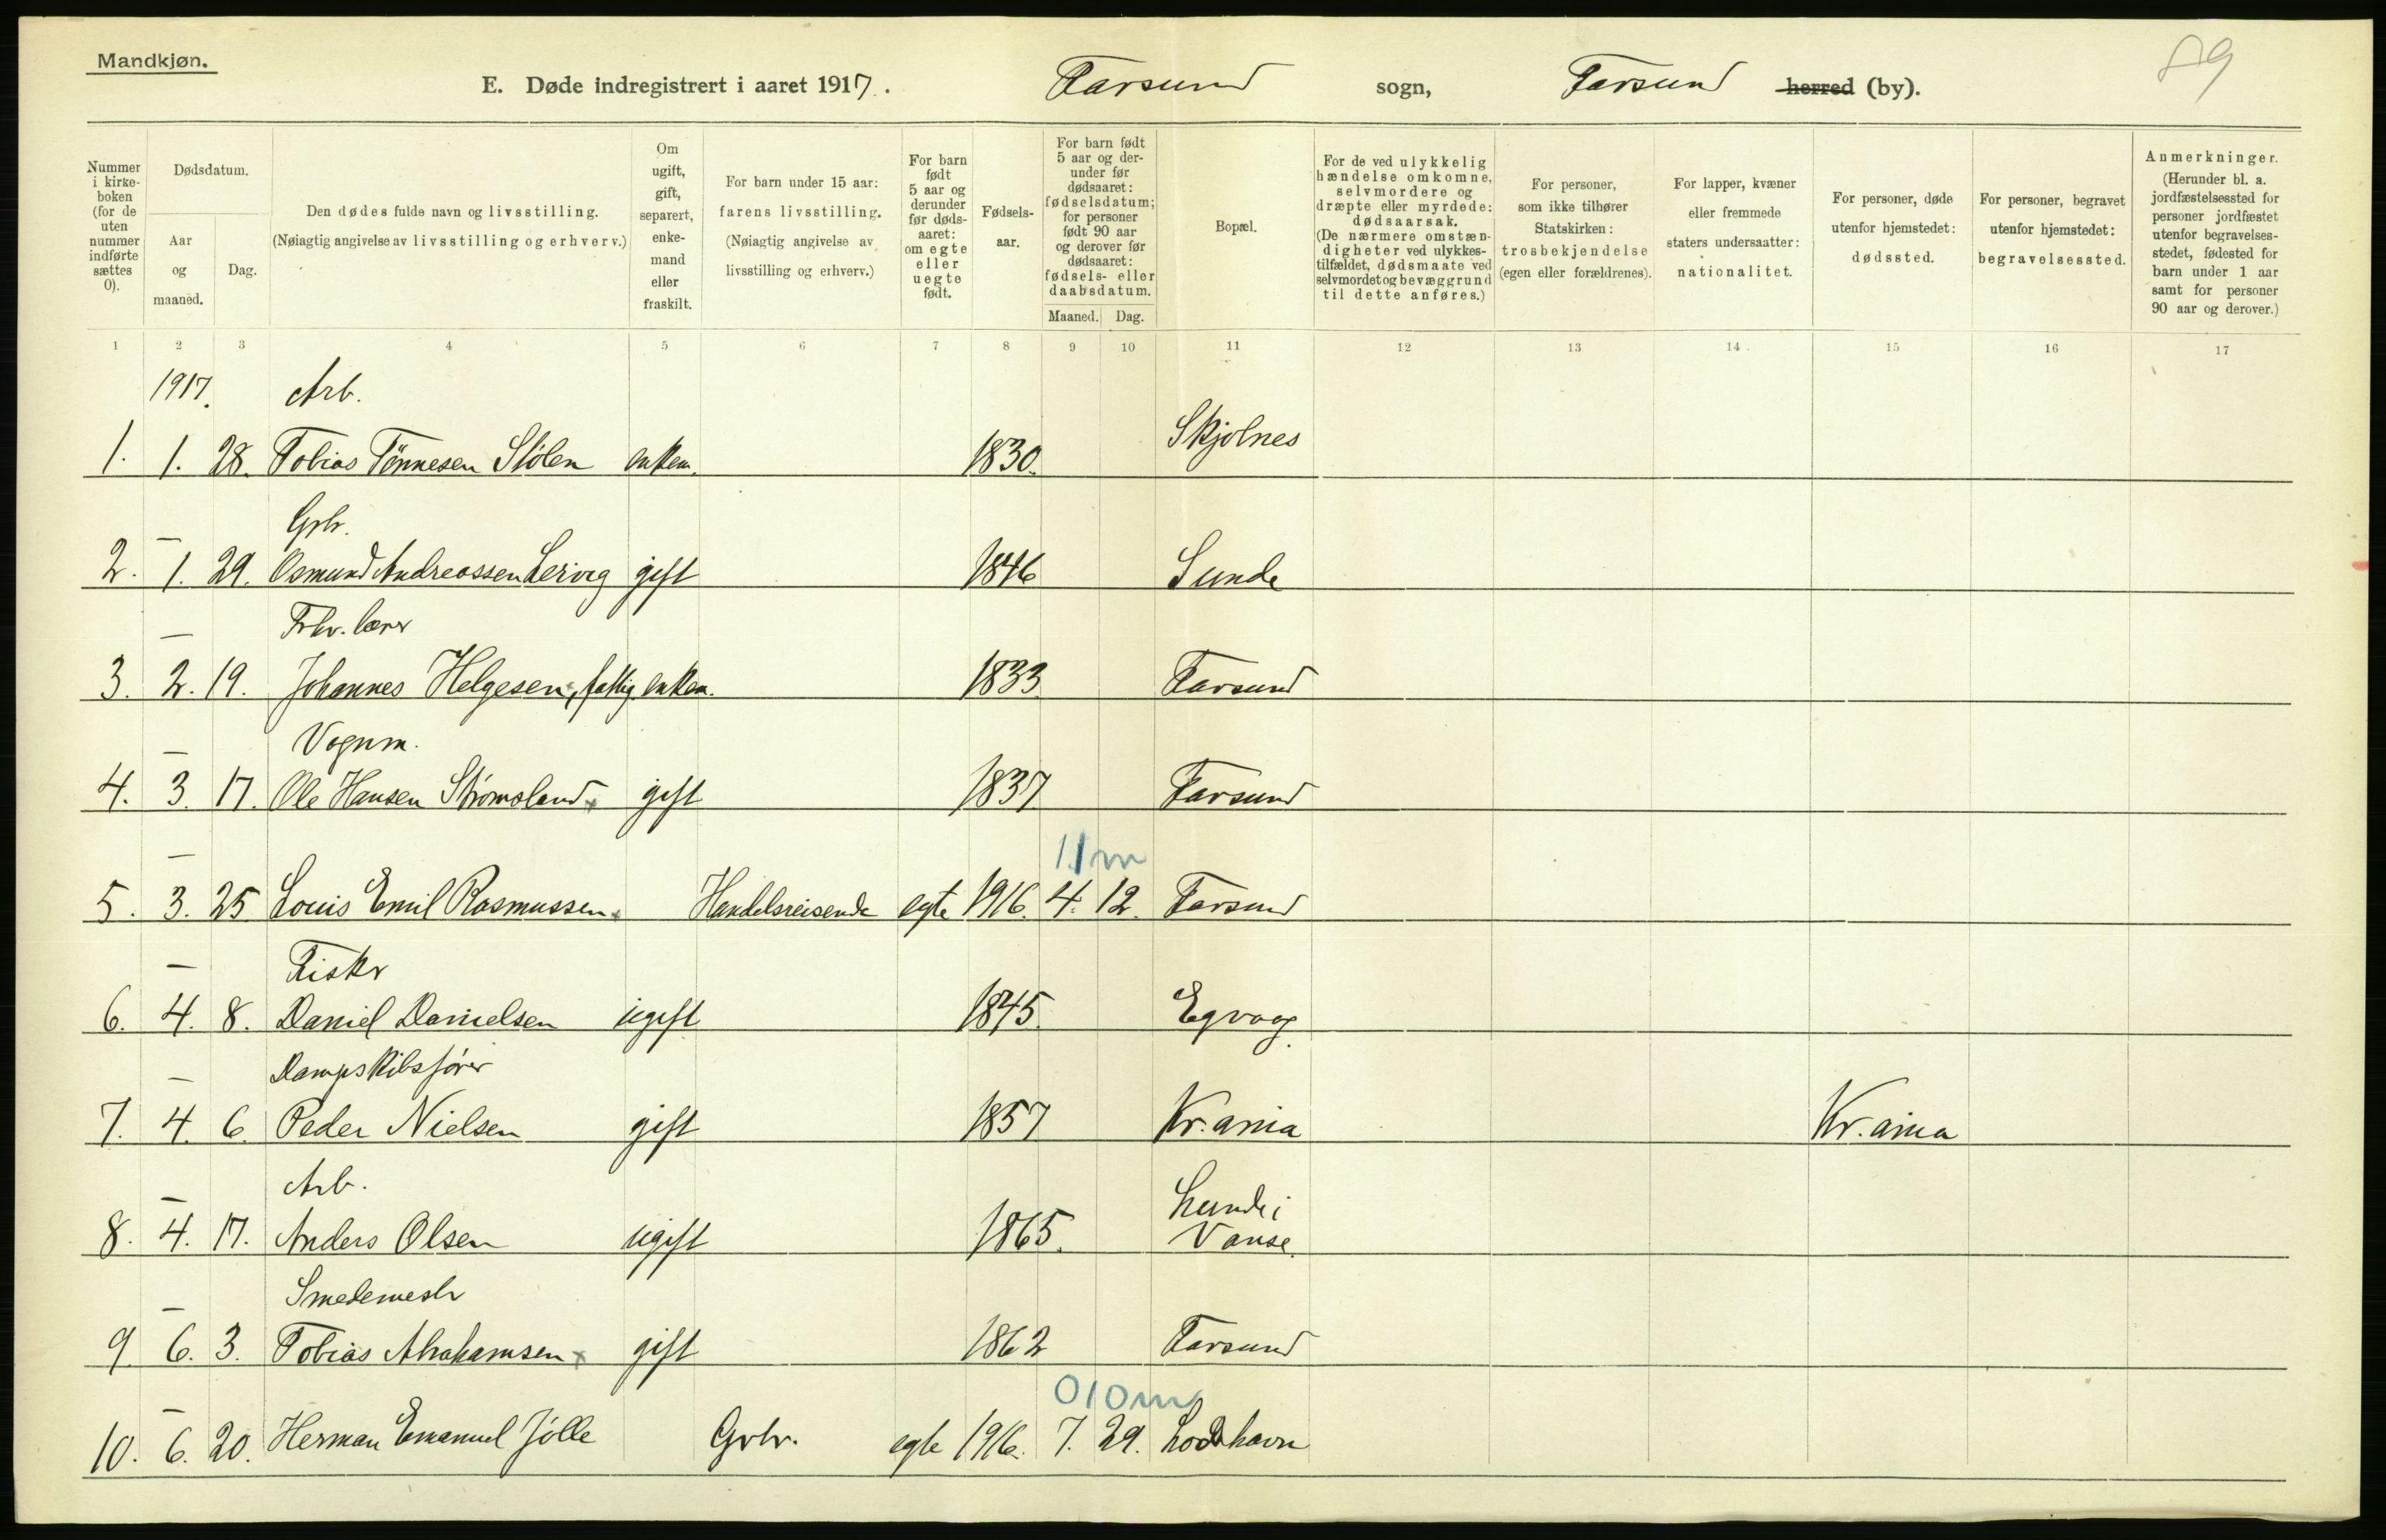 Mandkjøn.
89
E. Døde indregistrert i aaret 1917. Farsund sogn, Farsund herred (by).
Nummer i kirkeboken (for de uten nummer indførte sættes 0).
Dødsdatum.
Aar og maaned.
Dag.
Den dødes fulde navn og livsstilling.
(Nøiagtig angivelse av livsstilling og erhverv.)
Om ugift, gift, separert, enkemand eller fraskilt.
For barn under 15 aar: farens livsstilling.
(Nøiagtig angivelse av livsstilling og erhverv.)
For barn født 5 aar og derunder før dødsaaret: om egte eller uegte født.
Fødselsaar.
For barn født 5 aar og derunder før dødsaaret: fødselsdatum; for personer født 90 aar og derover før dødsaaret: fødsels- eller daabsdatum.
Maaned. Dag.
Bopæl.
For de ved ulykkelig hændelse omkomne, selvmordere og dræpte eller myrdede: dødsaarsak.
(De nærmere omstændigheter ved ulykkestilfældet, dødsmaate ved selvmordet og bevæggrund til dette anføres.)
For personer, som ikke tilhører Statskirken: trosbekjendelse (egen eller forældrenes).
For lapper, kvæner eller fremmede staters undersaatter: nationalitet.
For personer, døde utenfor hjemstedet: dødssted.
For personer, begravet utenfor hjemstedet: begravelsessted.
Anmerkninger.
(Herunder bl. a. jordfæstelsessted for personer jordfæstet utenfor begravelsesstedet, fødested for barn under 1 aar samt for personer 90 aar og derover.)
1 2 3 4 5 6 7 8 9 10 11 12 13 14 15 16 17
1917. Arb.
1. 1. 28. Tobias Tönnesen Stölen enkem. 1830. Skjolnes
Grbr.
2. – 1. 29. Osmund Andreassen Lervig gift 1846 Sunde
Fhv. lærer
3. – 2. 19. Johannes Helgesen, fattig enkem. 1833 Farsund
Vognm.
4. – 3. 17. Ole Hansen Strømsland x gift 1837 Farsund
11 m
5. – 3. 25 Louis Emil Rasmussen x Handelsreisende egte 1916. 4. 12. Farsund
Fisker
6. – 4. 8. Daniel Danielsen ugift 1845. Egvaag
Dampskibsfører
7. – 4. 6. Peder Nielsen gift 1857 Kr.ania Kr.ania
Arb. Lunde i
8. – 4. 17. Anders Olsen ugift 1865. Vanse.
Smedemestr
9. – 6. 3. Tobias Abrahamsen x gift 1862 Farsund
0 10 m
10. – 6. 20. Herman Emanuel Jölle Grbr. egte 1916. 7. 29. Loshavn